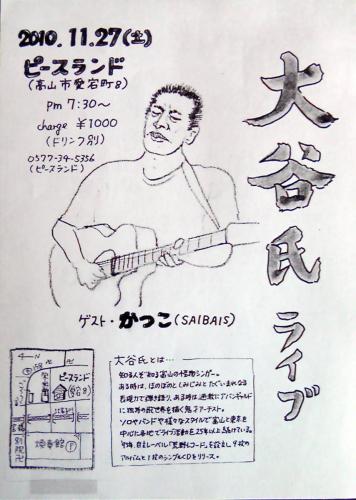 2010.11.27(土)
ピースランド
(高山市愛宕町8)
pm 7:30〜
charge ¥1000
(ドリンク別)
0577-34-5356
(ピースランド)
大谷氏ライブ
ゲスト・かっこ(SAIBAIS)
N
ピースランド
(愛宕8)
別院
大谷氏とは…
知る人ぞ知る富山の怪物シンガー。
ある時は、ほのぼのと、しみじみと、たぐいまれなる
表現力で弾き語り、ある時は過激にアバンギャルド
に独特の歌世界を描く鬼才アーチスト。
ソロやバンドや様々なスタイルで富山と東京を
中心に各地でライブ活動を25年以上続けている。
アルバムと1枚のシングルCDをリリース。